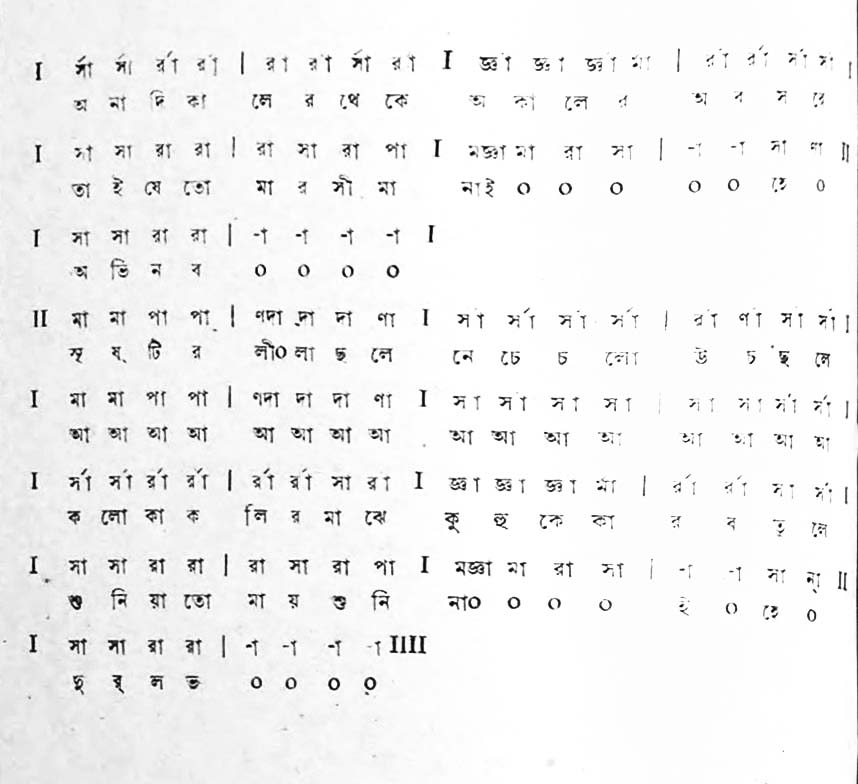 I র্সা র্সা র্রা র্রা | র্রা র্রা র্সা র্রা I র্জ্ঞা র্জ্ঞা র্জ্ঞা র্মা | র্রা র্রা র্সা র্সা I
অ না দি কা লে র থে কে অ কা লে র অ ব স রে
I সা সা রা রা | রা সা রা পা I মজ্ঞা মা রা সা | -া -া সা ণা II
তা ই যে তো মা র সী মা নাই ০ ০ ০ ০ ০ হে ০
I সা সা রা রা | -া -া -া -া I
অ ভি ন ব ০ ০ ০ ০
II মা মা পা পা | ণদা দা দা ণা I র্সা র্সা র্সা র্সা | র্রা ণা র্সা র্সা I
সৃ ষ্ টি র লী০ লা ছ লে নে চে চ লো উ চ্ ছ লে
I মা মা পা পা | ণদা দা দা ণা I র্সা র্সা র্সা র্সা | র্সা র্সা র্সা র্সা I
আ আ আ আ আ আ আ আ আ আ আ আ আ আ আ আ
I র্সা র্সা র্রা র্রা | র্রা র্রা র্সা র্রা I র্জ্ঞা র্জ্ঞা র্জ্ঞা র্মা | র্রা র্রা র্সা র্সা I
ক লো কা ক লি র মা ঝে কু হু কে কা র ব তু লে
I সা সা রা রা | রা সা রা পা I মজ্ঞা মা রা সা | -া -া সা ন্া II
শু নি য়া তো মা য় শু নি না০ ০ ০ ০ ই ০ হে ০
I সা সা রা রা | -া -া -া -া IIII
দু র্ ল ভ ০ ০ ০ ০